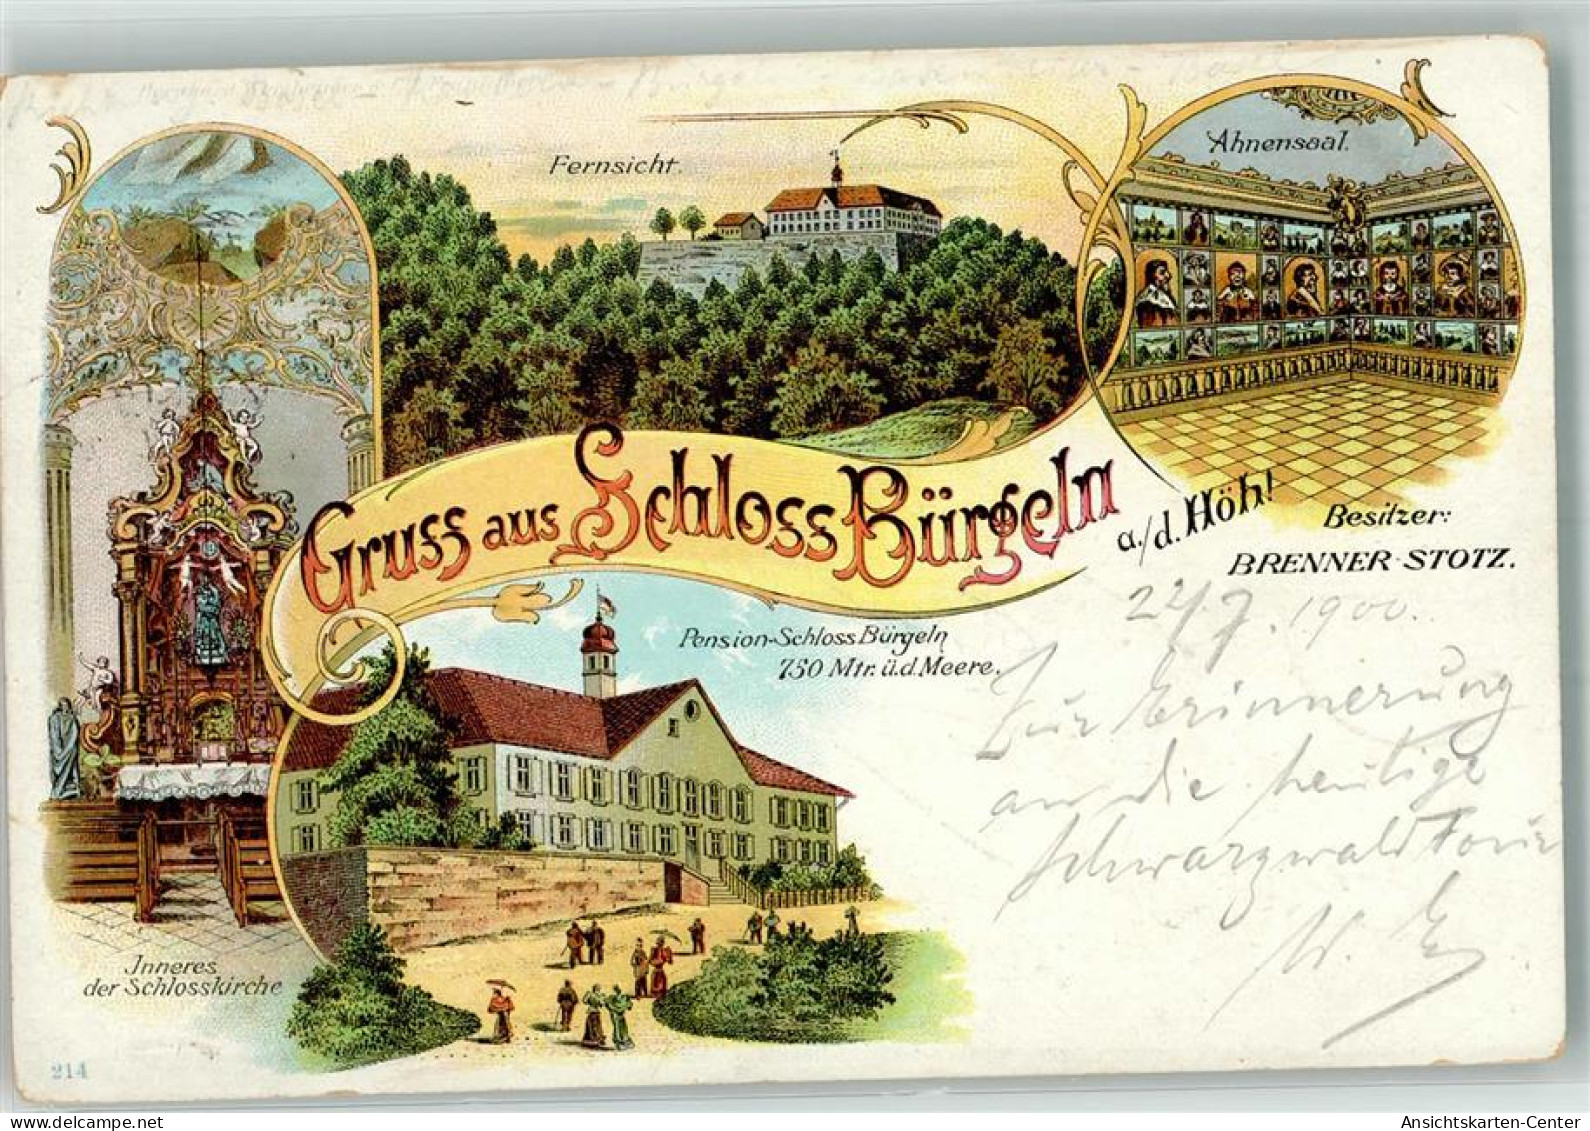 Basel
Fernsicht.
Ahnensaal.
Gruss aus Schloss Bürgeln
a./d. Höh!
Besitzer:
BRENNER-STOTZ.
Pension-Schloss Bürgeln
750 Mtr. ü.d. Meere.
22/7. 1900.
Zur Erinnerung
an die heutige
Schwarzwald Tour
Inneres
der Schlosskirche
214
Ansichtskarten-Center